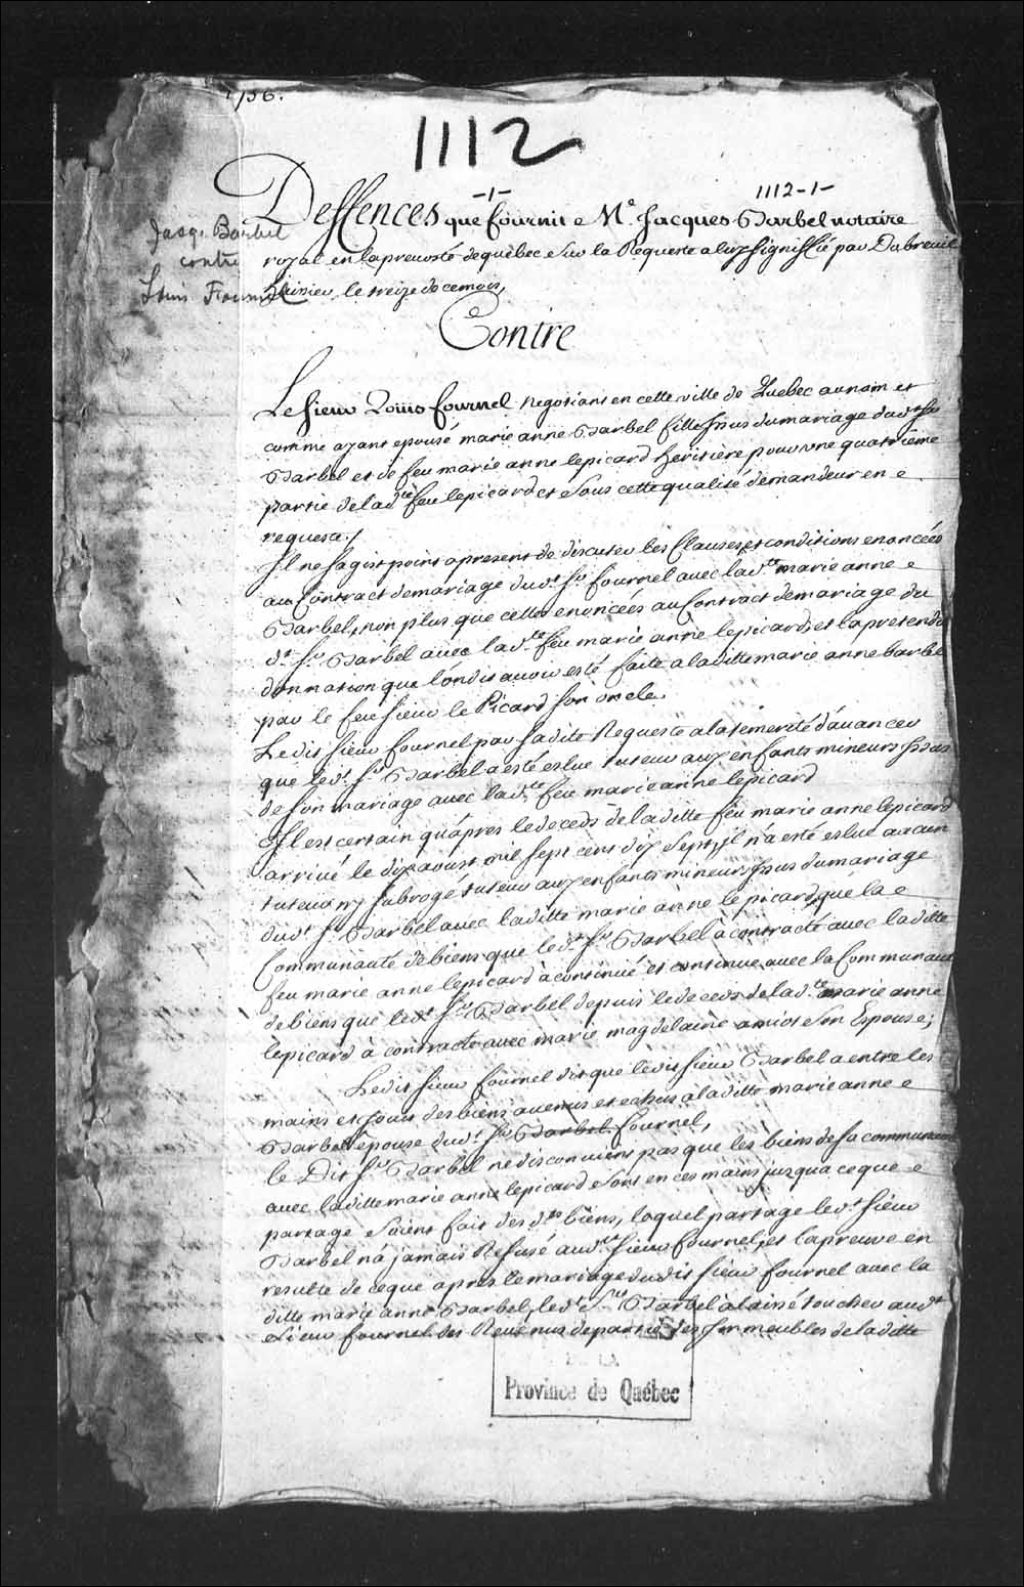 1736.
1112
-1-
1112-1-
Jacqs Barbel
contre
Louis Fournel
Deffences que fournit Me. Jacques Barbel notaire
royal en la prevosté de quebec Sur la Requeste a luy signiffié par Dubreuil
huissier le treize de ce mois,
Contre
Le sieur Louis fournel negotiant en cette ville de Quebec au nom et
comme ayant epousé marie anne Barbel fille issus du mariage dudt. sr.
Barbel et de feu marie anne lepicard heritière pour une quatrième
partie de lad.te feu lepicard et Sous cette qualité demandeur en
requeste./
Il ne sagist point apresent de discuter les Clauses et conditions enoncées
au Contract de mariage dudt. sr. fournel avec lad.te marie anne
Barbel, non plus que celles enoncées au Contract de mariage du
dt. sr. Barbel avec lad.te feu marie anne lepicard, et la pretendu
donnation que l'ondit avoir esté faite a laditte marie anne barbel
par le feu sieur le Picard son oncle.
Ledit sieur fournel par sadite Requeste a la temerité d'avancer
que led.t sr. Barbel a esté eslue tuteur aux enfants mineurs issus
de son mariage avec lad.te feu marie anne lepicard
Il est certain qu'apres le deceds de laditte feu marie anne lepicard
arrivé le dix aoust mil sept cent dix sept, il n'a esté eslue aucun
tuteur ny subrogé tuteur aux enfants mineurs issus du mariage
dudt. sr. Barbel avec laditte marie anne le picard, que la
Communauté de biens que led.t sr. Barbel à contracté avec laditte
feu marie anne lepicard à continué et continue avec la Communauté
de biens que led.t sr. Barbel depuis le deceds de lad.te marie anne
lepicard à contracté avec marie magdelaine amiot son Epouse;
Ledit sieur fournel dit que ledit sieur Barbel a entre les
mains et jouit des biens avenus et echus à laditte marie anne
Barbel épouse dudt. sr. Barbel fournel,
le Dit sr. Barbel ne disconvient pas que les biens de sa communauté
avec laditte marie anne lepicard Sont en ces mains jusqua ce que
partage Soient fait des d.ts biens, loquel partage led.t sieur
Barbel n'à jamais Refusé aud.t sieur fournel, et la preuve en
resulte de ceque apres le mariage dudit sieur fournel avec la
ditte marie anne Barbel, led.t Sr. Barbel à laissé toucher aud.t
Sieur fournel des Revenus de partie des immeubles de laditte
DE LA
Province de Québec